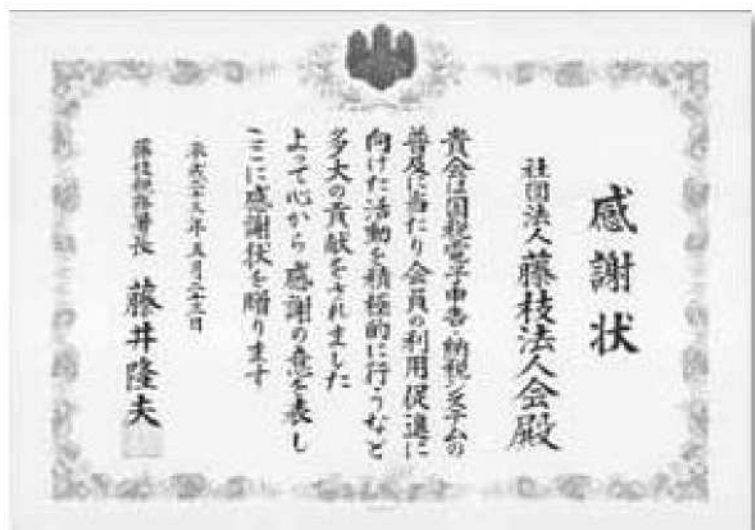 感謝状
社団法人 藤枝法人会殿
貴会は国税電子申告・納税システムの
普及に当たり会員の利用促進に
向けた活動を積極的に行うなど
多大の貢献をされました
よって心から感謝の意を表し
ここに感謝状を贈ります
平成二十三年五月二十三日
藤枝税務署長 藤井隆夫